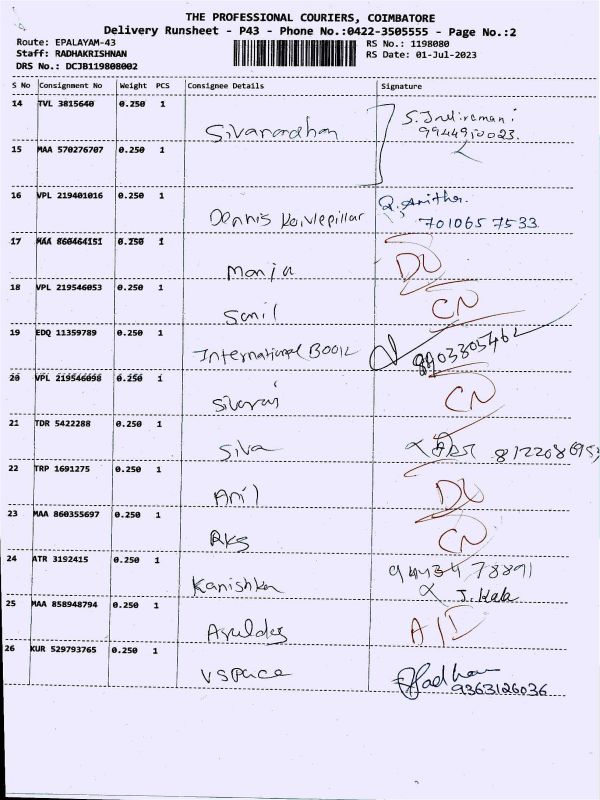 THE PROFESSIONAL COURIERS, COIMBATORE
Delivery Runsheet - P43 - Phone No.:0422-3505555 - Page No.:2
Route: EPALAYAM-43 RS No.: 1198080
Staff: RADHAKRISHNAN RS Date: 01-Jul-2023
DRS No.: DCJB119808002
S No Consignment No Weight PCS Consignee Details Signature
14 TVL 3815640 0.250 1 Sivanandhan
15 MAA 570276707 0.250 1
16 VPL 219401016 0.250 1 Dennis R. Anitha
7010657533
17 MAA 860464151 0.250 1 DL
18 VPL 219546053 0.250 1 Sunil CN
19 EDQ 11359789 0.250 1 International Book 8903305462
20 VPL 219546098 0.250 1 Sivaraj CN
21 TDR 5422288 0.250 1 Siva
22 TRP 1691275 0.250 1 Anil DL
23 MAA 860355697 0.250 1 RKS CN
24 ATR 3192415 0.250 1 Kanishka
25 MAA 858948794 0.250 1
26 KUR 529793765 0.250 1 VSPace
9363126036